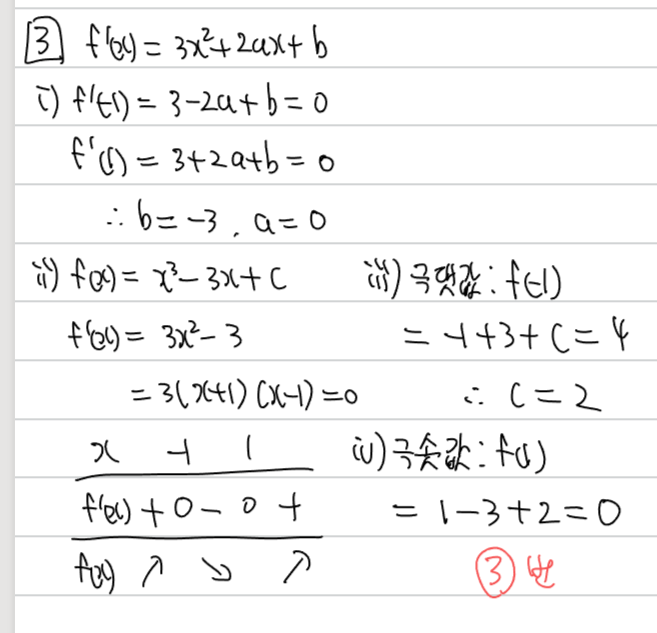 3 f'(x) = 3x²+2ax+b
i) f'(-1) = 3-2a+b=0
f'(1) = 3+2a+b=0
∴ b=-3, a=0
ii) f(x) = x³-3x+c
f'(x) = 3x²-3
= 3(x+1)(x-1)=0
x -1 1
f'(x) + 0 - 0 +
f(x) ↗ ↘ ↗
iii) 극댓값: f(-1)
= -1+3+c=4
∴ c=2
iv) 극솟값: f(1)
= 1-3+2=0
③번